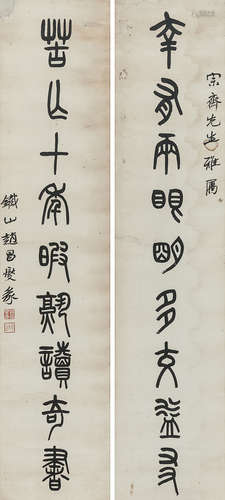 宗齊先生雅屬
幸有兩眼明多交益友
苦亡十年暇熟讀奇書
鐵山趙昌燮篆